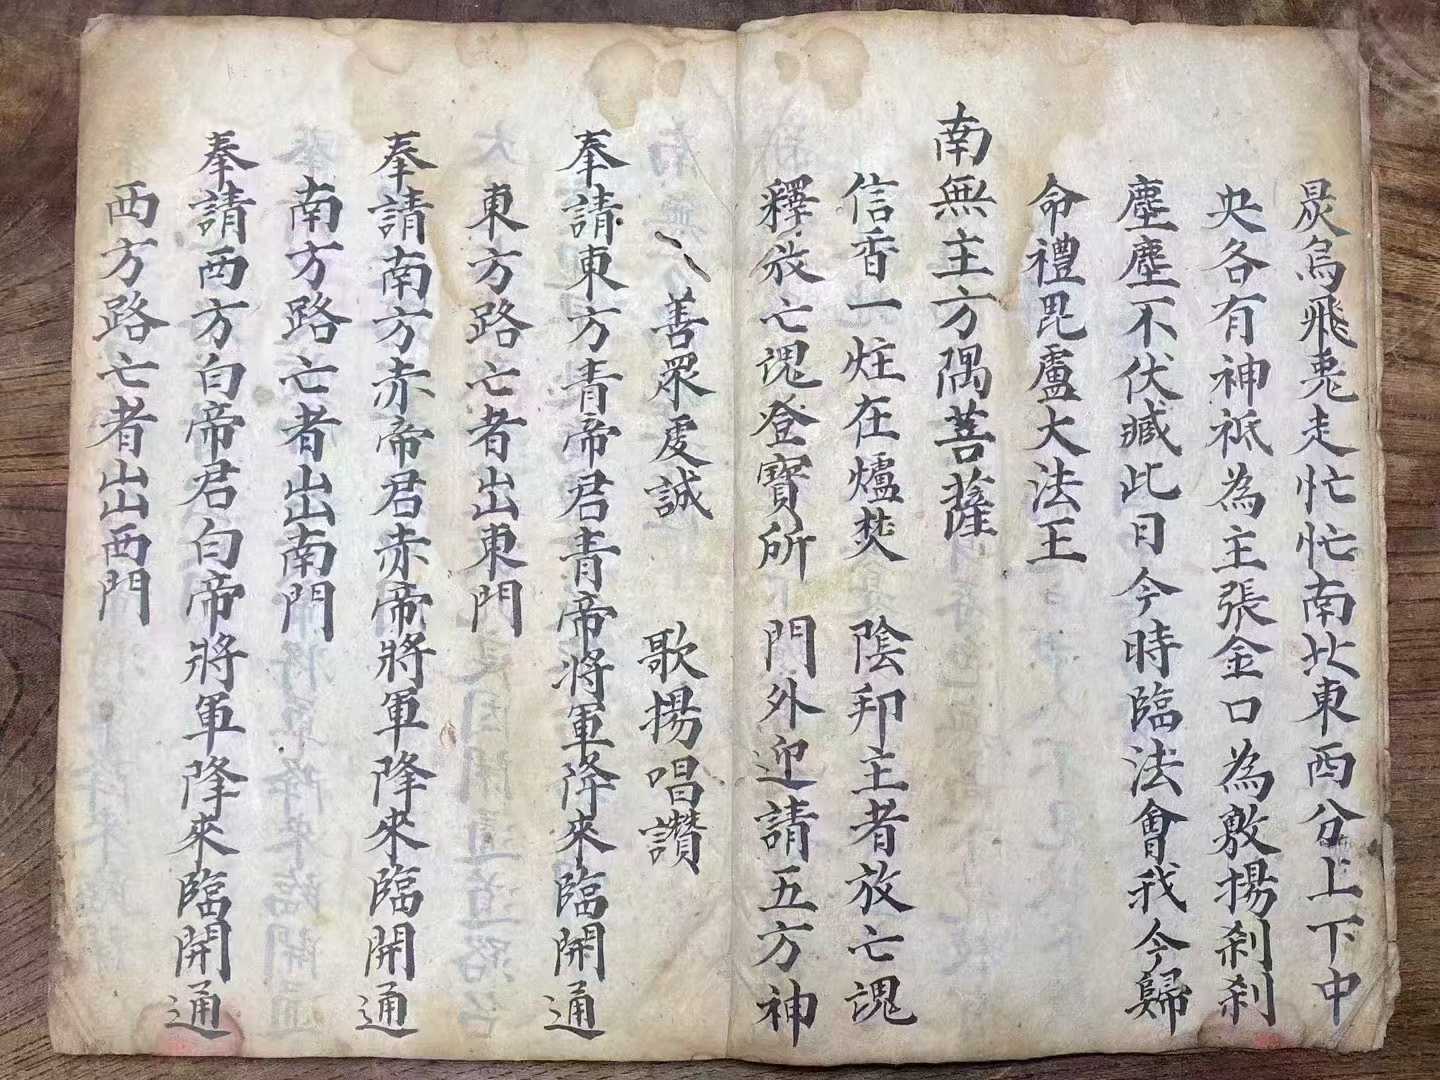 炅烏飛兎走忙忙南北東西分上下中
央各有神祇為主張金口為敷揚刹刹
塵塵不伏臧此日今時臨法會我今歸
命禮毘盧大法王
南無主方隅菩薩
信香一炷在爐焚 陰邦主者放亡魂
釋放亡魂登寳所 門外迎請五方神
善眾虔誠 歌揚唱讚
奉請東方青帝君青帝將軍降來臨開通
東方路亡者出東門
奉請南方赤帝君赤帝將軍降來臨開通
南方路亡者出南門
奉請西方白帝君白帝將軍降來臨開通
西方路亡者出西門